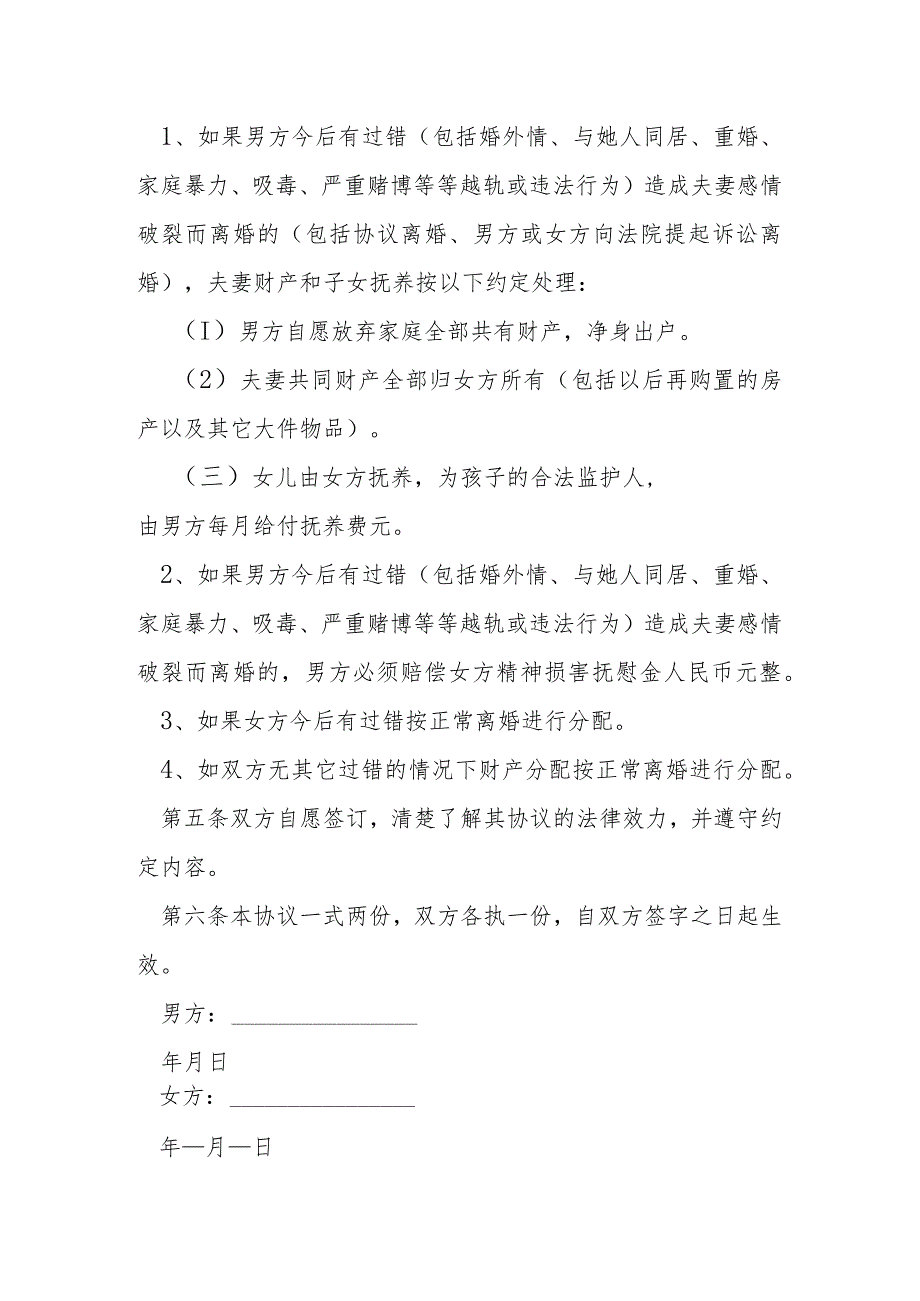 1、如果男方今后有过错（包括婚外情、与她人同居、重婚、
家庭暴力、吸毒、严重赌博等等越轨或违法行为）造成夫妻感情
破裂而离婚的（包括协议离婚、男方或女方向法院提起诉讼离
婚），夫妻财产和子女抚养按以下约定处理：
（I）男方自愿放弃家庭全部共有财产，净身出户。
（2）夫妻共同财产全部归女方所有（包括以后再购置的房
产以及其它大件物品）。
（三）女儿由女方抚养，为孩子的合法监护人，
由男方每月给付抚养费元。
2、如果男方今后有过错（包括婚外情、与她人同居、重婚、
家庭暴力、吸毒、严重赌博等等越轨或违法行为）造成夫妻感情
破裂而离婚的，男方必须赔偿女方精神损害抚慰金人民币元整。
3、如果女方今后有过错按正常离婚进行分配。
4、如双方无其它过错的情况下财产分配按正常离婚进行分配。
第五条双方自愿签订，清楚了解其协议的法律效力，并遵守约
定内容。
第六条本协议一式两份，双方各执一份，自双方签字之日起生
效。
男方：________________
年月日
女方：________________
年—月—日